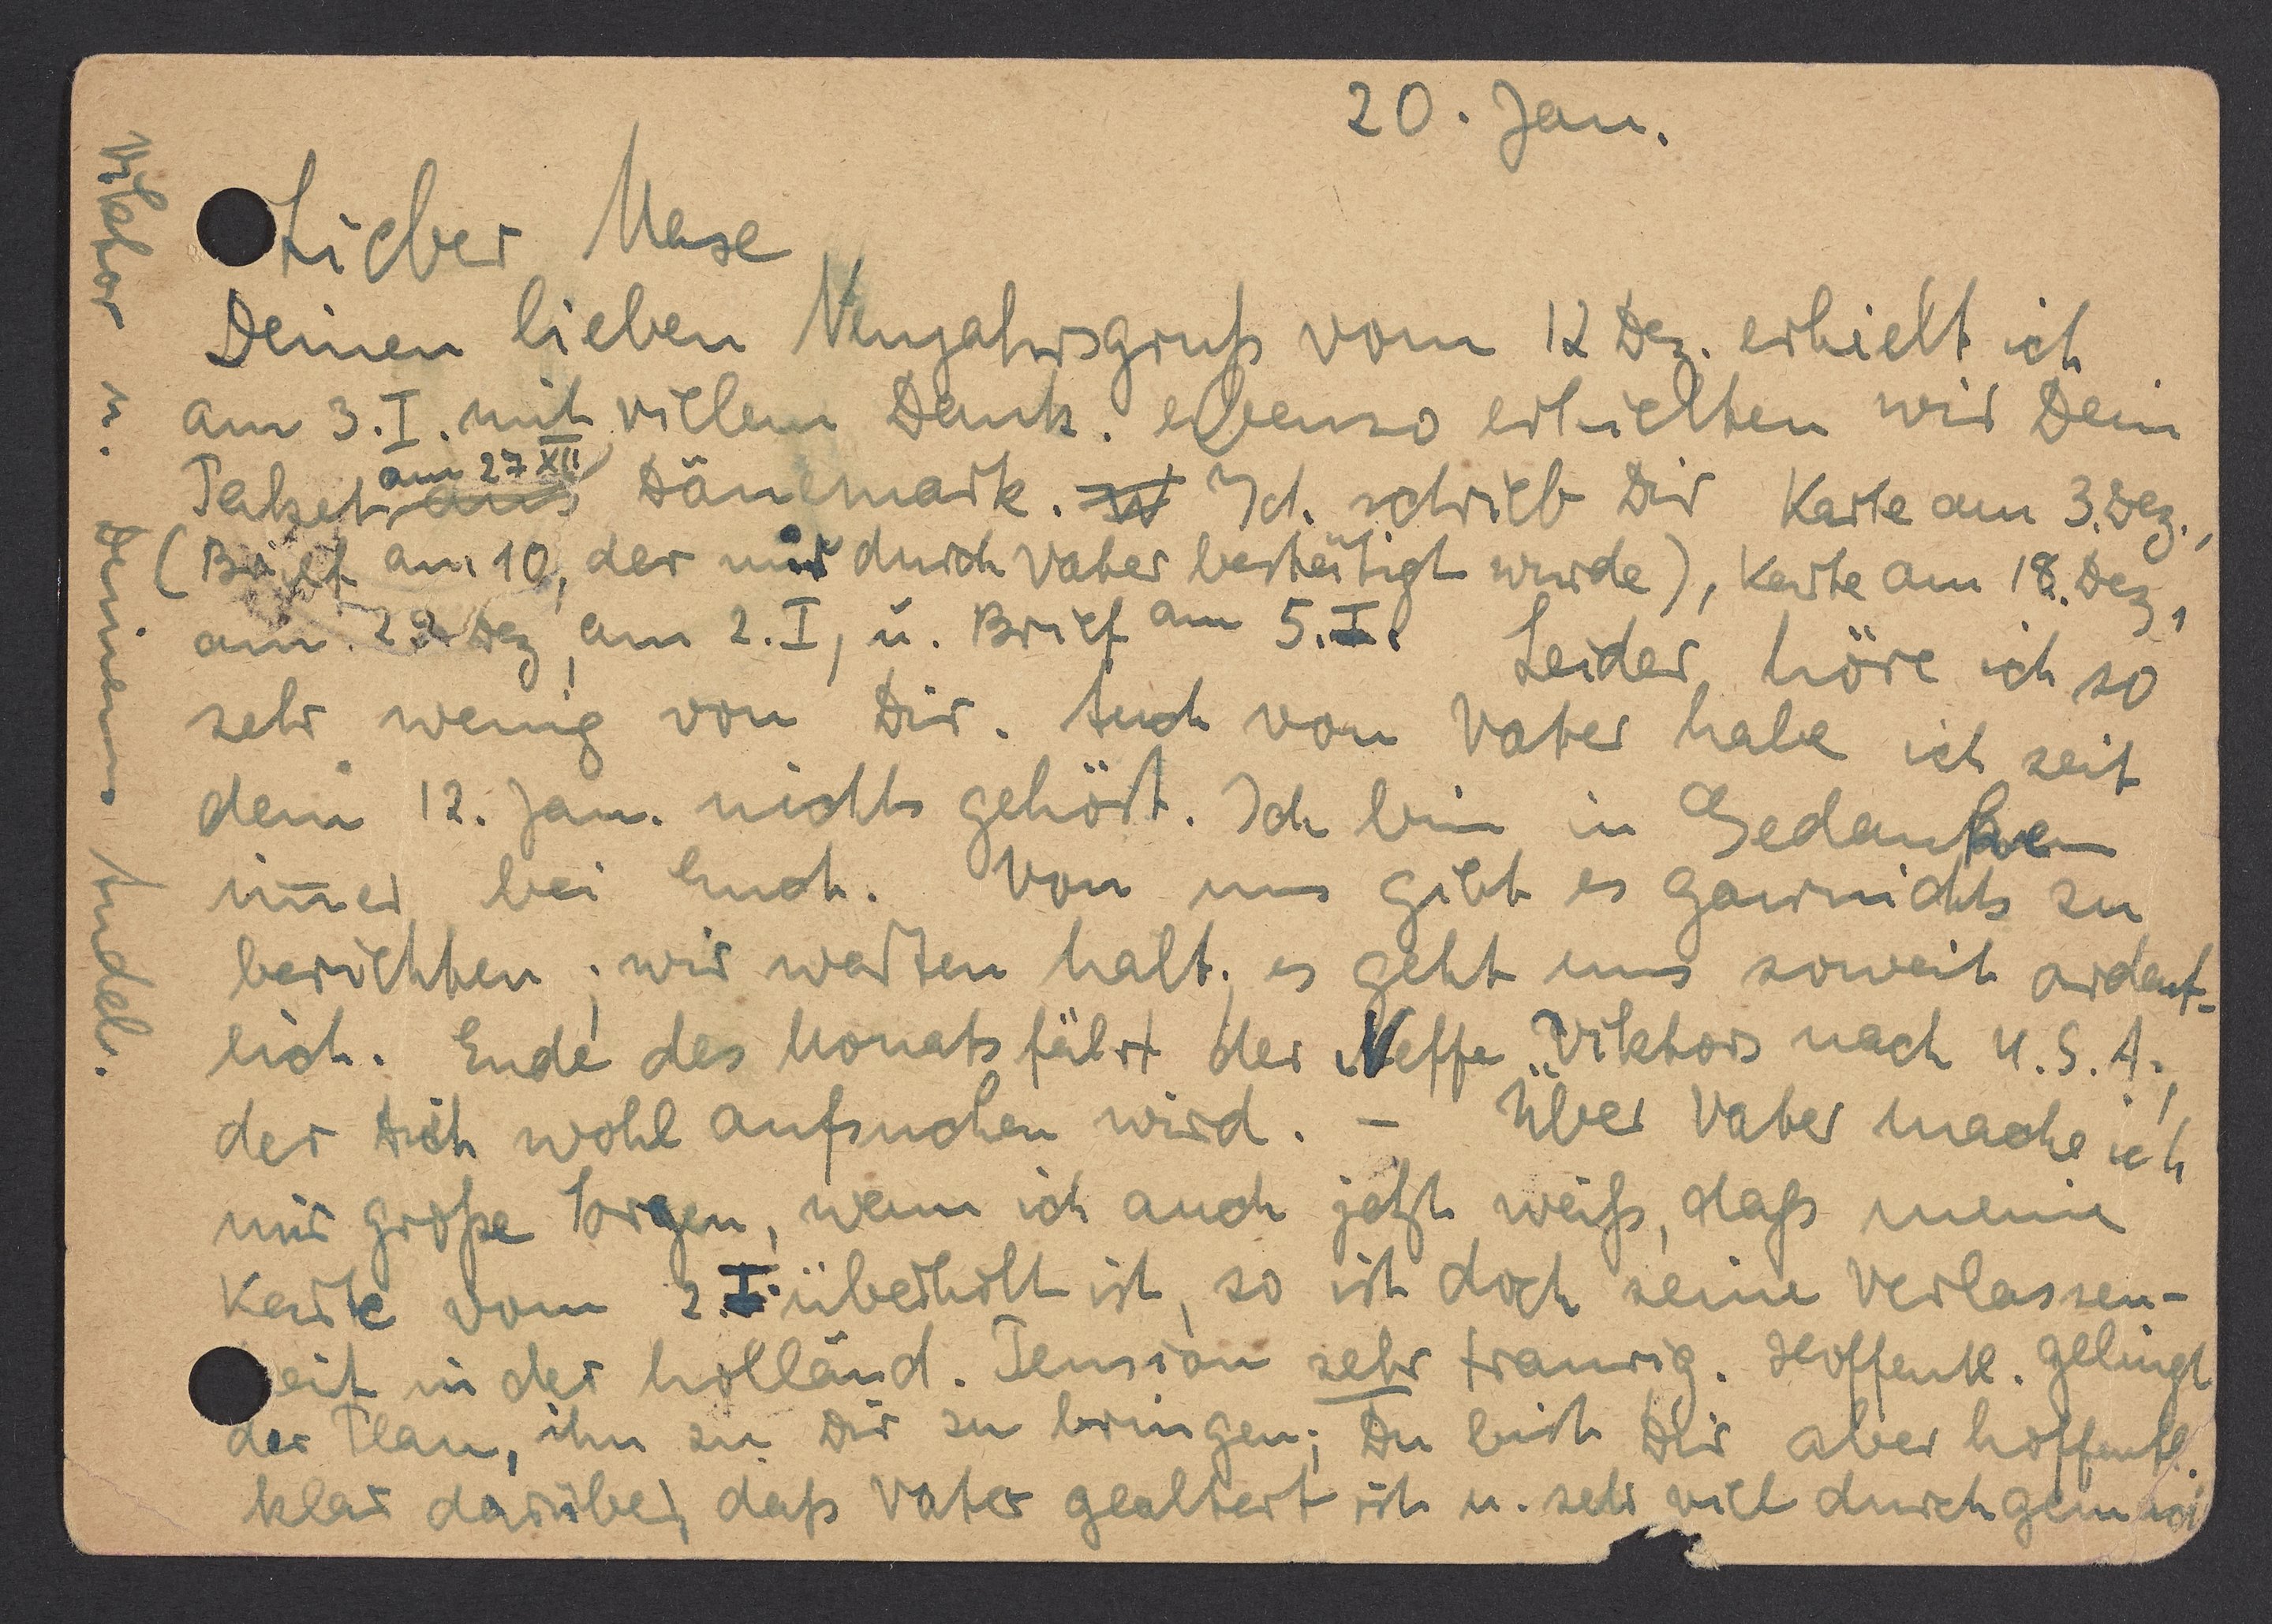 20. Jan.
Lieber Mase
Deinen lieben Neujahrsgruß vom 12 Dez. erhielt ich
am 3. I. mit vielem Dank. ebenso erhielten wir Dein
Paket aus am 27 XII Dänemark. Ich schrieb Dir Karte am 3. Dez.,
(Brief am 10, der mir durch Vater bestätigt wurde), Karte am 18. Dez,
am 22 Dez, am 2. I, u. Brief am 5. I. Leider höre ich so
sehr wenig von Dir. Auch von Vater habe ich seit
dem 12. Jan. nichts gehört. Ich bin in Gedanken
im̅er bei Euch. Von uns gibt es garnichts zu
berichten; wir warten halt; es geht uns soweit ordent-
lich. Ende des Monats fährt der Neffe Viktors nach U.S.A.,
der Dich wohl aufsuchen wird. – Über Vater mache ich
mir große Sorgen, wenn ich auch jetzt weiß, daß meine
Karte vom 2. I. überholt ist, so ist doch seine Verlassen-
eit in der holländ. Pension sehr traurig. Hoffentl. gelingt
der Plan, ihn zu Dir zu bringen; Du bist Dir aber hoffentl.
klar darüber, daß Vater gealtert ist u. sehr viel durchgem
Viktor u. Deinem Pudel.